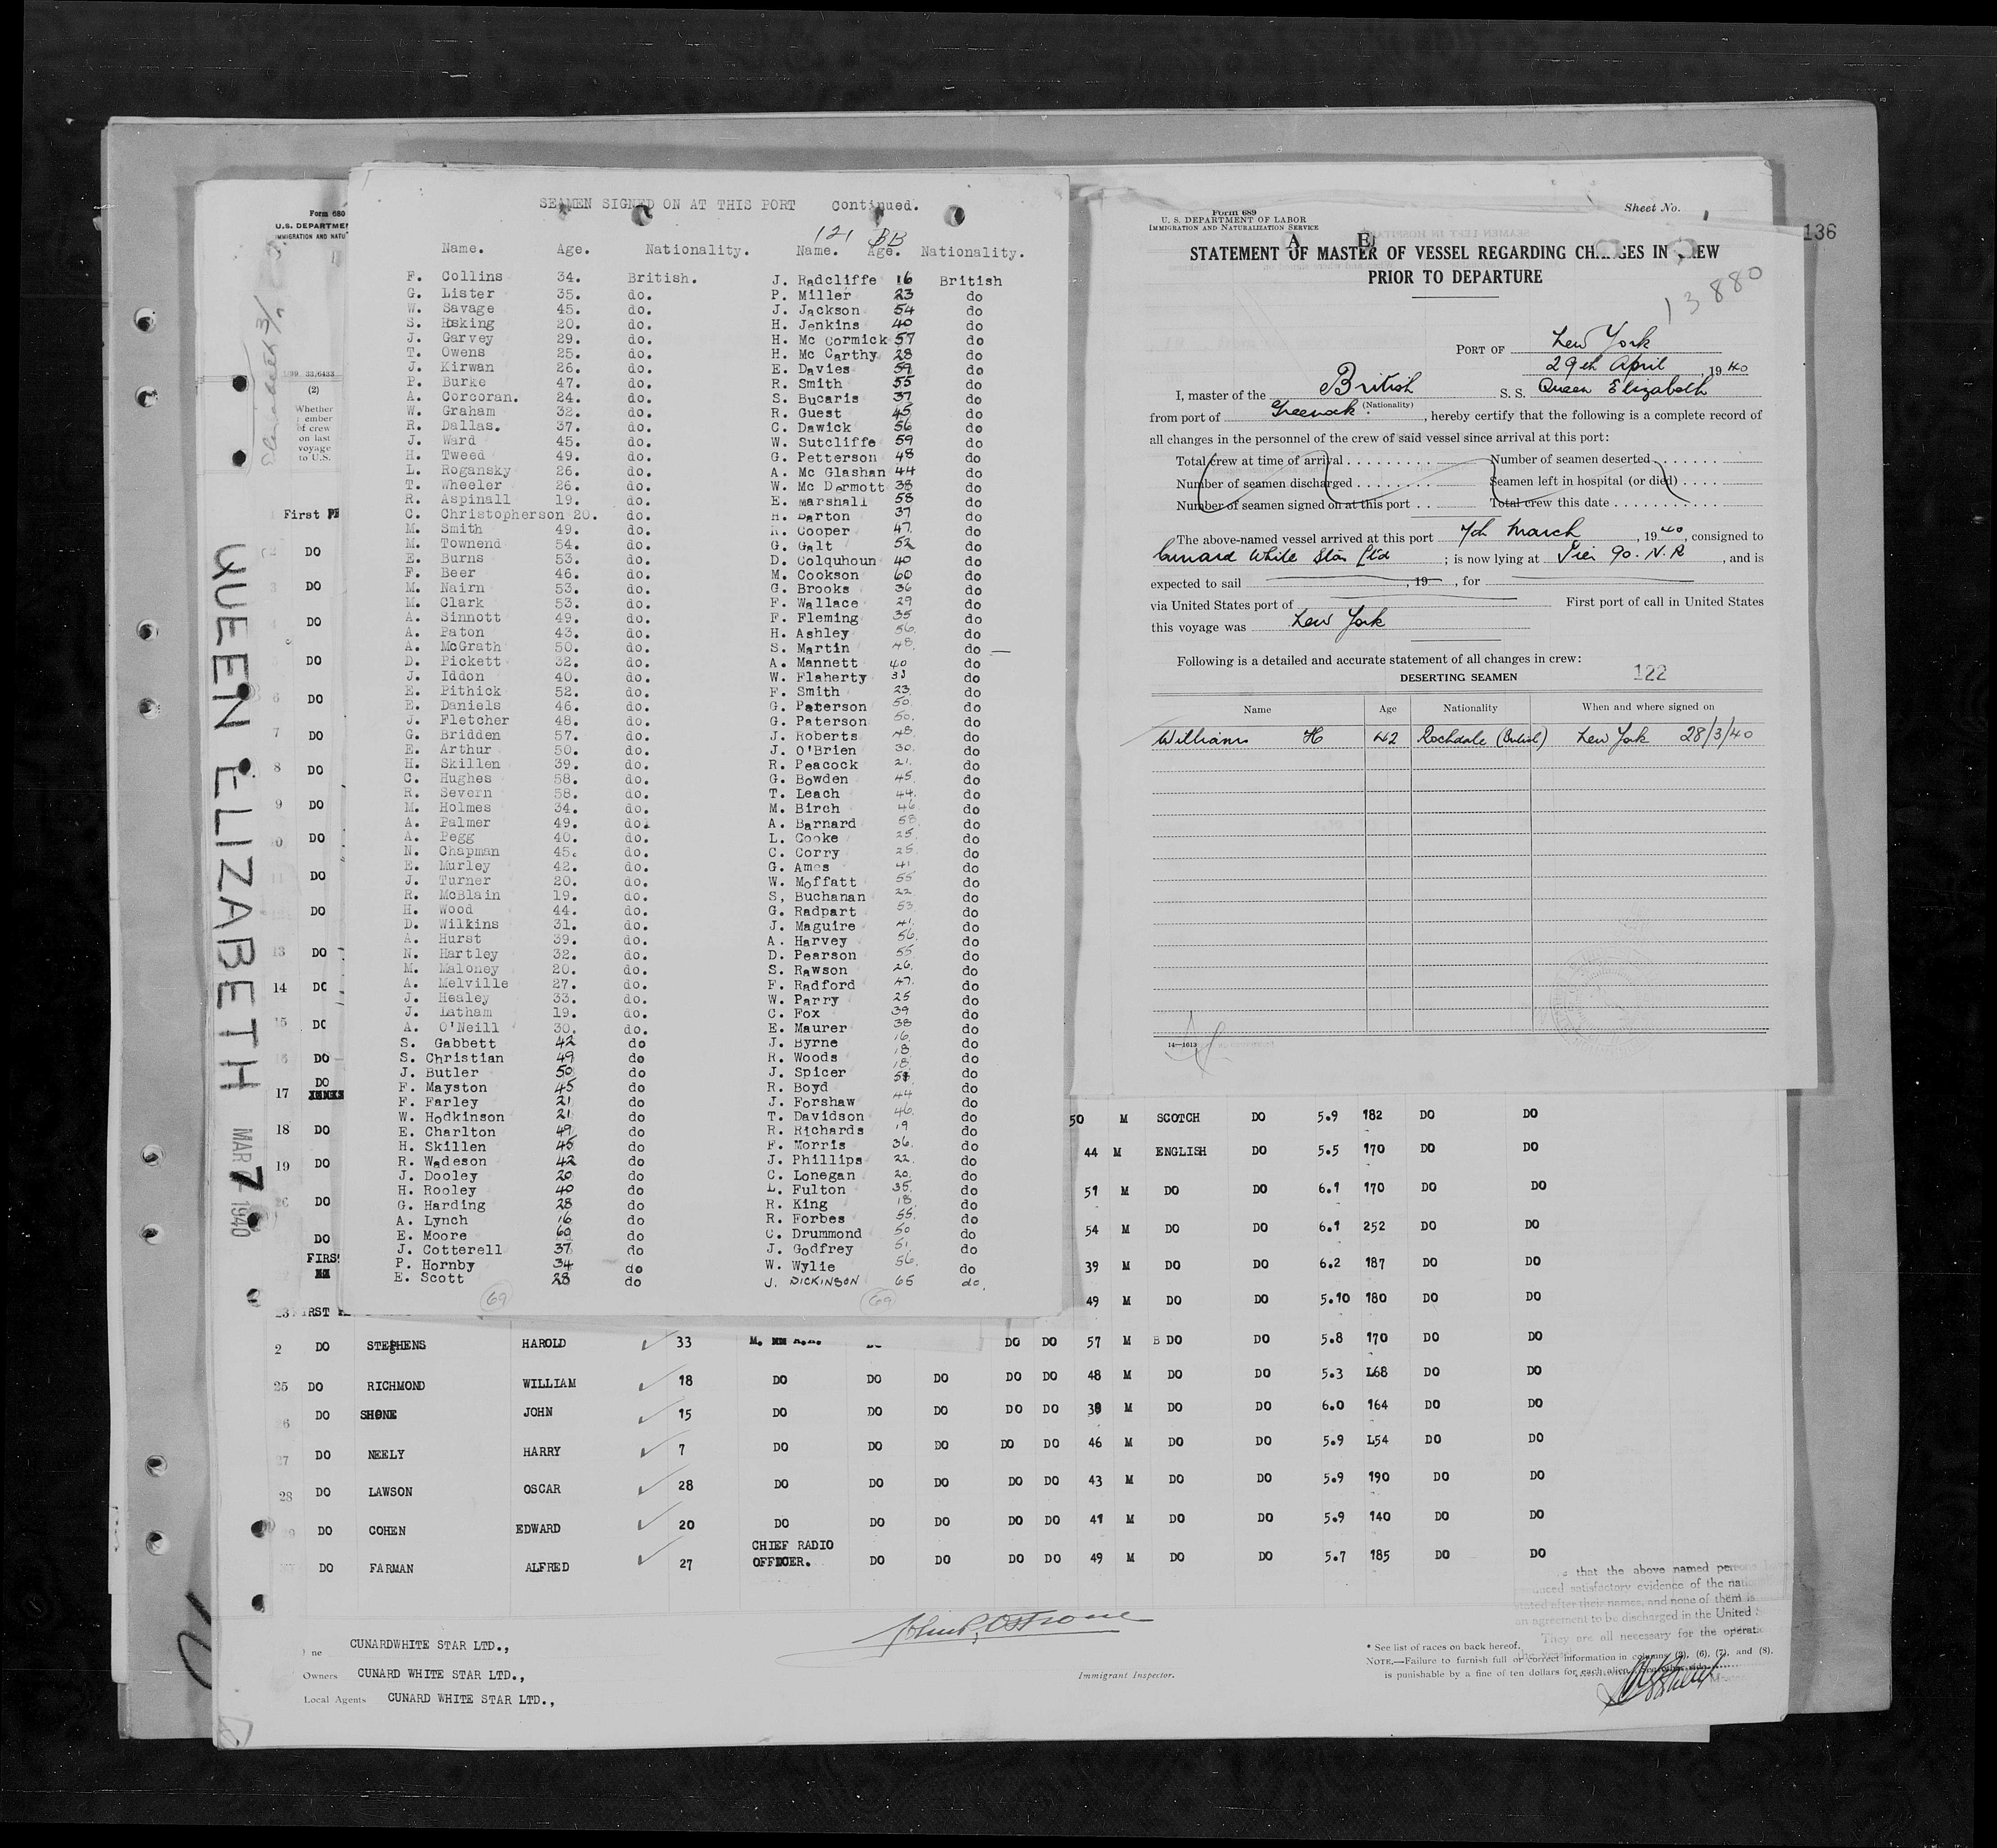 QUEEN ELIZABETH MAR 7 1940
Form 680
U.S. DEPARTME
IMMIGRATION AND NATU
(2)
Whether
ember
of crew
on last
voyage
to U.S.
SEAMEN SIGNED ON AT THIS PORT continued.
121 BB
Name. Age. Nationality. Name. Age. Nationality.
F. Collins 34. British. J. Radcliffe 16 British
G. Lister 35. do. P. Miller 23 do
W. Savage 45. do. J. Jackson 54 do
S. Hosking 20. do. H. Jenkins 40 do
J. Garvey 29. do. H. Mc Cormick 57 do
T. Owens 25. do. H. Mc Carthy 28 do
J. Kirwan 26. do. E. Davies 59 do
P. Burke 47. do. R. Smith 55 do
A. Corcoran. 24. do. S. Bucaris 37 do
W. Graham 32. do. R. Guest 45 do
R. Dallas. 37. do. C. Dawick 56 do
J. Ward 45. do. W. Sutcliffe 59 do
H. Tweed 49. do. G. Petterson 48 do
L. Rogansky 26. do. A. Mc Glashan 44 do
T. Wheeler 26. do. W. Mc Dermott 38 do
R. Aspinall 19. do. E. Marshall 58 do
C. Christopherson 20. do. H. Barton 37 do
M. Smith 49. do. R. Cooper 47. do
M. Townend 54. do. G. Galt 52 do
E. Burns 53. do. D. Colquhoun 40 do
F. Beer 46. do. M. Cookson 60 do
M. Nairn 53. do. G. Brooks 36 do
M. Clark 53. do. F. Wallace 29 do
A. Sinnott 49. do. F. Fleming 35 do
A. Paton 43. do. H. Ashley 56. do
A. McGrath 50. do. S. Martin 48. do
D. Pickett 32. do. A. Mannett 40 do
J. Iddon 40. do. W. Flaherty 33 do
E. Pithick 52. do. F. Smith 23. do
E. Daniels 46. do. G. Paterson 50. do
J. Fletcher 48. do. G. Paterson 50. do
G. Bridden 57. do. J. Roberts 48. do
E. Arthur 50. do. J. O'Brien 30. do
H. Skillen 39. do. R. Peacock 21. do
C. Hughes 58. do. G. Bowden 45. do
R. Severn 58. do. T. Leach 44. do
M. Holmes 34. do. M. Birch 46 do
A. Palmer 49. do. A. Barnard 58. do
A. Pegg 40. do. L. Cooke 25. do
N. Chapman 45. do. C. Corry 25. do
E. Murley 42. do. G. Ames 41 do
J. Turner 20. do. W. Moffatt 55 do
R. McBlain 19. do. S, Buchanan 22 do
H. Wood 44. do. G. Radpart 53. do
D. Wilkins 31. do. J. Maguire 41. do
A. Hurst 39. do. A. Harvey 56. do
N. Hartley 32. do. D. Pearson 55. do
M. Maloney 20. do. S. Rawson 26. do
A. Melville 27. do. F. Radford 47. do
J. Healey 33. do. W. Parry 25 do
J. Latham 19. do. C. Fox 39 do
A. O'Neill 30. do. E. Maurer 38 do
S. Gabbett 42 do J. Byrne 16. do
S. Christian 49 do R. Woods 18. do
J. Butler 50 do J. Spicer 18. do
F. Mayston 45 do R. Boyd do
F. Farley 21 do J. Forshaw 44 do
W. Hodkinson 21 do T. Davidson 46. do
E. Charlton 49 do R. Richards 19 do
H. Skillen 45 do F. Morris 36. do
R. Wadeson 42 do J. Phillips 22. do
J. Dooley 20 do C. Lonegan 20. do
H. Rooley 40 do L. Fulton 35. do
G. Harding 28 do R. King 18. do
A. Lynch 16 do R. Forbes 55. do
E. Moore 60 do C. Drummond 50 do
J. Cotterell 37 do J. Godfrey 51. do
P. Hornby 34 do W. Wylie 56. do
E. Scott 28 do J. DICKINSON 65 do.
69 69
Sheet No. 1
136
Form 689
U. S. DEPARTMENT OF LABOR
IMMIGRATION AND NATURALIZATION SERVICE
A E
STATEMENT OF MASTER OF VESSEL REGARDING CHANGES IN CREW
PRIOR TO DEPARTURE
13880
PORT OF New York
29th April, 1940
I, master of the British S. S. Queen Elizabeth
(Nationality)
from port of Greenock, hereby certify that the following is a complete record of
all changes in the personnel of the crew of said vessel since arrival at this port:
Total crew at time of arrival Number of seamen deserted
Number of seamen discharged Seamen left in hospital (or died)
Number of seamen signed on at this port Total crew this date
The above-named vessel arrived at this port 7th March, 1940, consigned to
Cunard White Star Ltd; is now lying at Pier 90. N.R, and is
expected to sail , 19 , for
via United States port of First port of call in United States
this voyage was New York
Following is a detailed and accurate statement of all changes in crew:
DESERTING SEAMEN 122
Name Age Nationality When and where signed on
Williams H 42 Rochdale (British) New York 28/3/40
14—1613
First
DO
DO
DO
DO
6 DO
7 DO
8 DO
9 DO
DO
11 DO
DO
13 DO
14 DO
15 DO
DO
DO
17
18 DO
19 DO
DO
DO
FIRST
50 M SCOTCH DO 5.9 182 DO DO
44 M ENGLISH DO 5.5 170 DO DO
51 M DO DO 6.1 170 DO DO
54 M DO DO 6.1 252 DO DO
39 M DO DO 6.2 187 DO DO
49 M DO DO 5.10 180 DO DO
2 DO STEPHENS HAROLD 33 DO DO 57 M B DO DO 5.8 170 DO DO
25 DO RICHMOND WILLIAM 18 DO DO DO DO DO 48 M DO DO 5.3 L68 DO DO
6 DO SHONE JOHN 15 DO DO DO DO DO 38 M DO DO 6.0 164 DO DO
27 DO NEELY HARRY 7 DO DO DO DO DO 46 M DO DO 5.9 L54 DO DO
28 DO LAWSON OSCAR 28 DO DO DO DO DO 43 M DO DO 5.9 190 DO DO
DO COHEN EDWARD 20 DO DO DO DO DO 41 M DO DO 5.9 140 DO DO
DO FARMAN ALFRED 27 CHIEF RADIO OFFICER. DO DO DO DO 49 M DO DO 5.7 185 DO DO
that the above named
satisfactory evidence of the
stated after their names, and none of them is
an agreement to be discharged in the United
They are all necessary for the
ne CUNARDWHITE STAR LTD.,
Owners CUNARD WHITE STAR LTD.,
Local Agents CUNARD WHITE STAR LTD.,
Immigrant Inspector.
* See list of races on back hereof.
NOTE.—Failure to furnish full or correct information in columns (5), (6), (7), and (8),
is punishable by a fine of ten dollars for each alien